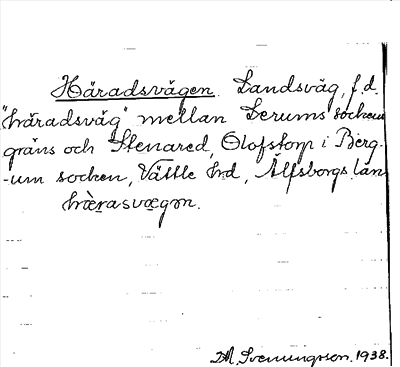 Häradsvägen. Landsväg, f.d.
"häradsväg" mellan Lerums socken
gräns och Stenared, Olofstorp i Berg-
-um socken, Vättle hd, Älfsborgs län
hæ̀rasvægən.
M. Svenungsson. 1938.